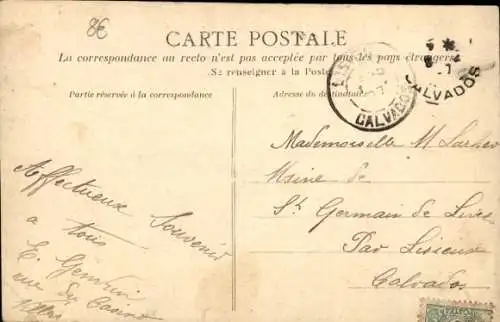 8€
CARTE POSTALE
La correspondance au recto n'est pas acceptée par tous les pays étrangers
Se renseigner à la Poste
Partie réservée à la correspondance
Adresse du destinataire
CALVADOS
CALVADOS
Mademoiselle M.
Usine de
St Germain de Livet
Par Lisieux
Calvados
Affectueux Souvenir
a tous
E.
rue du Casino